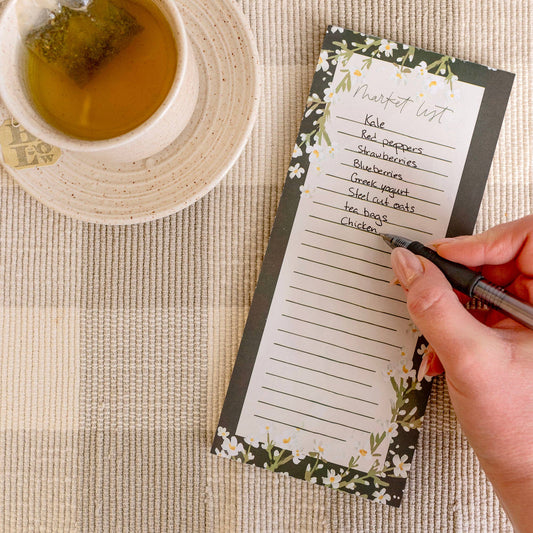 Market list
Kale
Red peppers
Strawberries
Blueberries
Greek yogurt
Steel cut oats
tea bags
Chicken